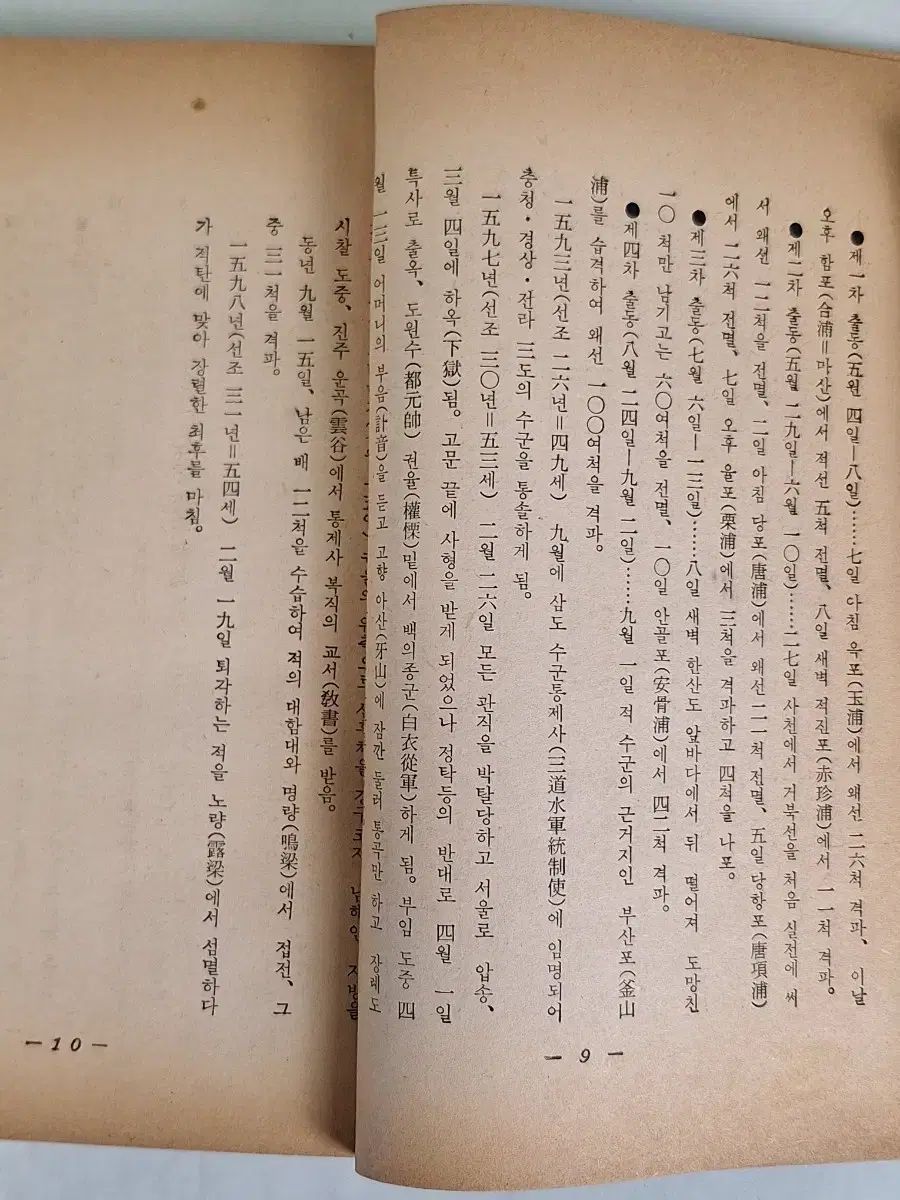 ●제一차 출동(五월 四일―八일)……七일 아침 옥포(玉浦)에서 왜선 二六척 격파、 이날
오후 합포(合浦＝마산)에서 적선 五척 전멸、 八일 새벽 적진포(赤珍浦)에서 一一척 격파。
●제二차 출동(五월 二九일―六월 一〇일)……二七일 사천에서 거북선을 처음 실전에 써
서 왜선 一二척을 전멸、 二일 아침 당포(唐浦)에서 왜선 二一척 전멸、 五일 당항포(唐項浦)
에서 二六척 전멸、 七일 오후 율포(栗浦)에서 三척을 격파하고 四척을 나포。
●제三차 출동(七월 六일―一三일)……八일 새벽 한산도 앞바다에서 뒤 떨어져 도망친
一〇척만 남기고는 六〇여척을 전멸、 一〇일 안골포(安骨浦)에서 四二척 격파。
●제四차 출동(八월 二四일―九월 二일)……九월 一일 적 수군의 근거지인 부산포(釜山
浦)를 습격하여 왜선 一〇〇여척을 격파。
一五九三년(선조 二六년＝四九세) 九월에 삼도 수군통제사(三道水軍統制使)에 임명되어
충청・경상・전라 三도의 수군을 통솔하게 됨。
一五九七년(선조 三〇년＝五三세) 二월 二六일 모든 관직을 박탈당하고 서울로 압송、
三월 四일에 하옥(下獄)됨。 고문 끝에 사형을 받게 되었으나 정탁등의 반대로 四월 一일
특사로 출옥、 도원수(都元帥) 권율(權慄)밑에서 백의종군(白衣從軍)하게 됨。 부임 도중 四
월 一三일 어머니의 부음(訃音)을 듣고 고향 아산(牙山)에 잠깐 둘러 통곡만 하고 장례도
— 9 —
남해안 지방을
시찰 도중、 진주 운곡(雲谷)에서 통제사 복직의 교서(敎書)를 받음。
동년 九월 一五일、 남은 배 一二척을 수습하여 적의 대함대와 명량(鳴梁)에서 접전、 그
중 三一척을 격파。
一五九八년(선조 三一년＝五四세) 二월 一九일 퇴각하는 적을 노량(露梁)에서 섬멸하다
가 적탄에 맞아 강렬한 최후를 마침。
— 10 —